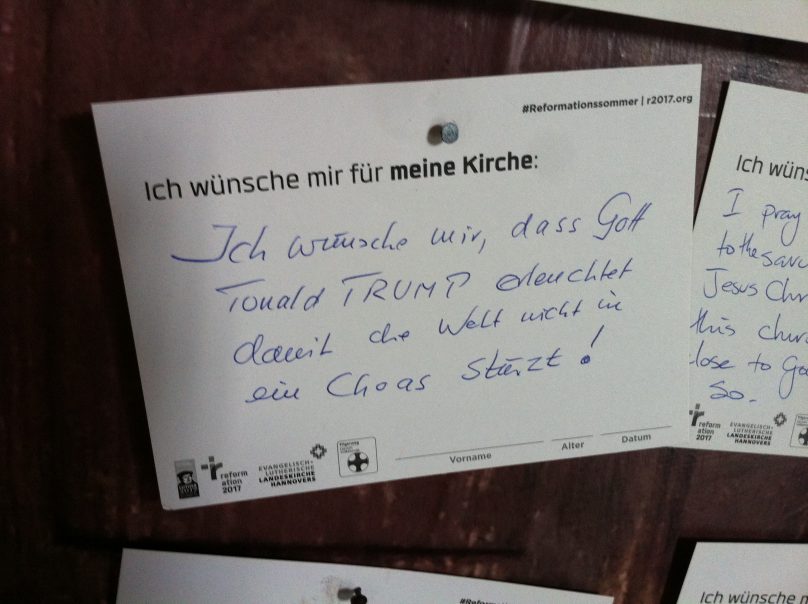 #Reformationssommer | r2017.org
Ich wünsche mir für meine Kirche:
Ich wünsche mir, dass Gott
Tonald TRUMP erleuchtet
damit die Welt nicht in
ein Choas stürzt!
reform
ation
2017
EVANGELISCH-
LUTHERISCHE
LANDESKIRCHE
HANNOVERS
Vorname
Alter
Datum
Ich wüns
I pray
to the
Jesus Chr
this chur
close to Go
So.
reform
ation
2017
EVANGELISCH-
LUTHERISCHE
LANDESKIRCHE
HANNOVERS
#Refor
Ich wünsche m